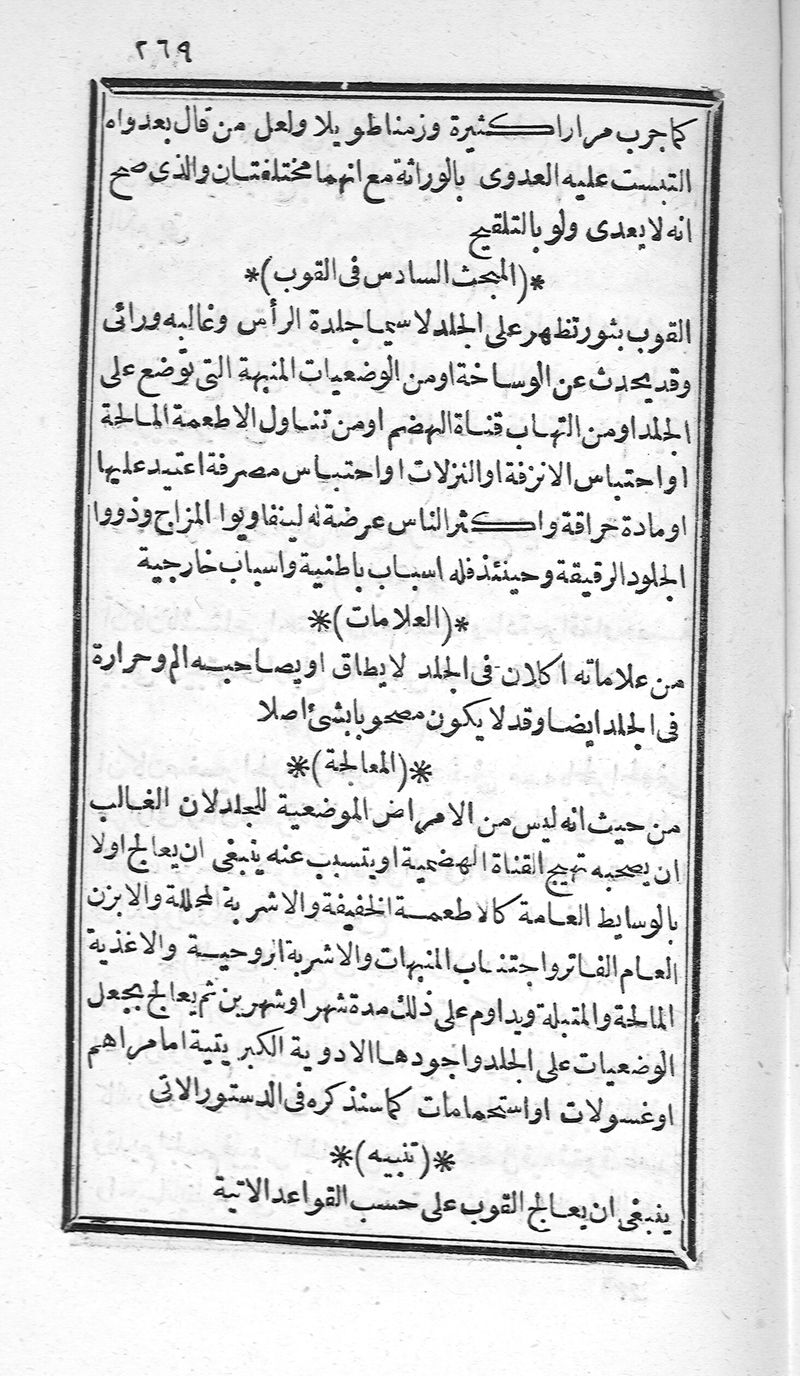 ٢٦٩
كما جرب مرارا كثيرة وزمنا طويلا ولعل من قال بعدواه
التبست عليه العدوى بالوراثة مع انهما مختلفتان والذى صح
انه لا يعدى ولو بالتلقيح
*(المبحث السادس فى القوب)*
القوب بثور تظهر على الجلد لا سيما جلدة الرأس وغالبه وراثى
وقد يحدث عن الوساخة او من الوضعيات المنبهة التى توضع على
الجلد او من التهاب قناة الهضم او من تناول الاطعمة المالحة
او احتباس الانزفة او النزلات او احتباس مصرفة اعتيد عليها
او مادة حراقة واكثر الناس عرضة له لينفاويوا المزاج وذووا
الجلود الرقيقة وحينئذ فله اسباب باطنية واسباب خارجية
*(العلامات)*
من علاماته اكلان فى الجلد لا يطاق او يصاحبه الم وحرارة
فى الجلد ايضا وقد لا يكون مصحوبا بشئ اصلا
*(المعالجة)*
من حيث انه ليس من الامراض الموضعية للجلد لان الغالب
ان يصحبه تهيج القناة الهضمية او يتسبب عنه ينبغى ان يعالج اولا
بالوسايط العامة كالاطعمة الخفيفة والاشربة المحللة والابزن
العام الفاتر واجتناب المنبهات والاشربة الروحية والاغذية
المالحة والمتبلة ويداوم على ذلك مدة شهر او شهرين ثم يعالج بجعل
الوضعيات على الجلد واجودها الادوية الكبريتية اما مراهم
او غسولات او استحمامات كما سنذكره فى الدستور الاتى
*(تنبيه)*
ينبغى ان يعالج القوب على حسب القواعد الاتية